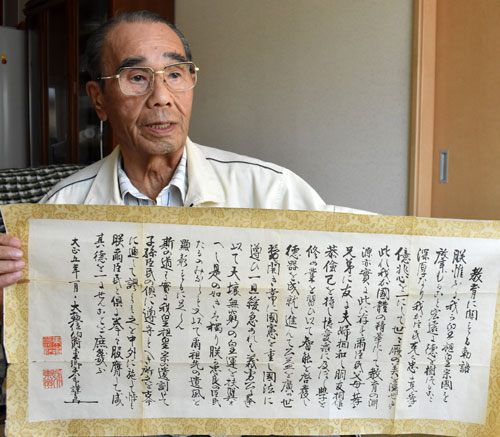 教育に関する勅語
朕惟ふに我か皇祖皇宗國を
肇むること宏遠に徳を樹つること
深厚なり我か臣民克く忠に克く孝に
億兆心を一にして世々厥の美を濟せるは
此れ我か國體の精華にして教育の淵
源亦實に此に存す爾臣民父母に孝に
兄弟に友に夫婦相和し朋友相信し
恭儉己を持し博愛衆に及ほし學を
修め業を習ひ以て智能を啓發し
徳器を成就し進て公益を廣め世
務を開き常に國憲を重し國法に
遵ひ一旦緩急あれは義勇公に奉し
以て天壤無窮の皇運を扶翼す
へし是の如きは獨り朕か忠良の臣民
たるのみならす又以て爾祖先の遺風を
顯彰するに足らん
斯の道は實に我か皇祖皇宗の遺訓にして
子孫臣民の倶に遵守すへき所之を古今
に通して謬らす之を中外に施して悖らす
朕爾臣民と倶に拳々服膺して咸
其徳を一にせんことを庶幾ふ
大正五年一月